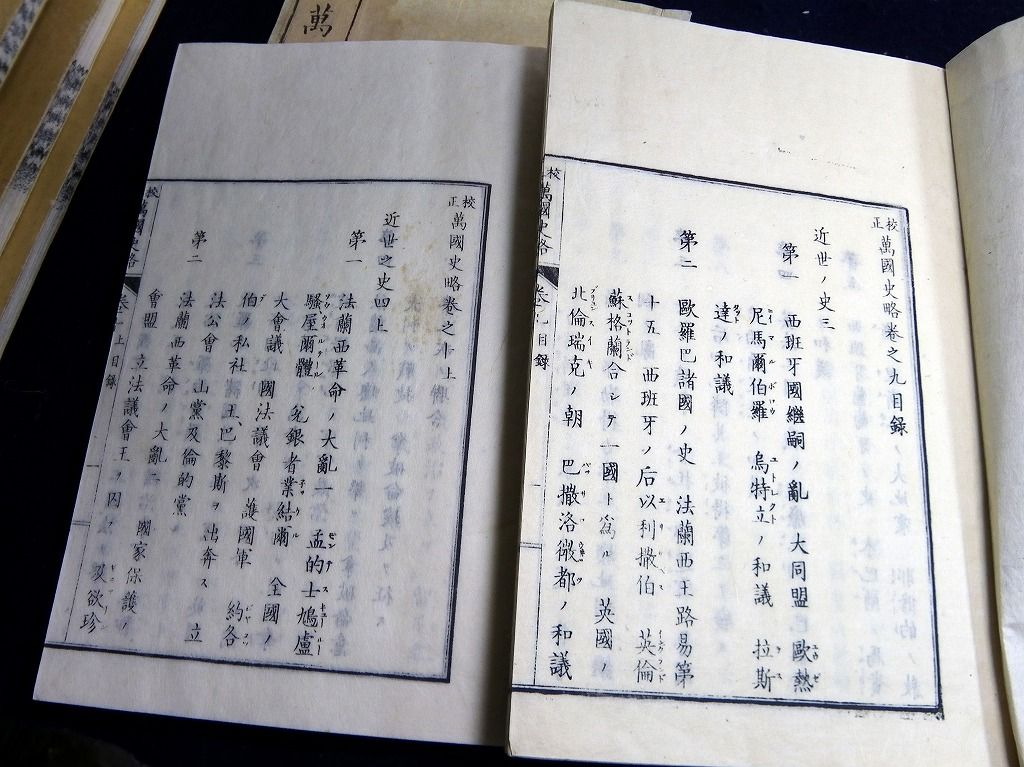 萬
校正 萬國史略卷之九目録
近世ノ史三
第一 西班牙國繼嗣ノ亂 大同盟 歐熱
尼馬爾伯羅 烏特立ノ和議 拉斯
達ノ和議
第二 歐羅巴諸國ノ史 法蘭西王路易第
十五 西班牙ノ后以利撒伯 英倫
蘇格蘭合シテ一國ト為ル 英國ノ
北倫瑞克ノ朝 巴撒洛微都ノ和議
校正 萬國史略卷之十上
近世之史四上
第一 法蘭西革命ノ大亂一 孟的士鳩盧
騷屋爾體 兌銀者業結爾 全國ノ
大會議 國法議會 護國軍 約各
伯ノ私社 王、巴黎斯ヲ出奔ス 立
法公會 山黨及倫的黨
第二 法蘭西革命ノ大亂二 國家保護ノ
會盟 立法議會王ヲ囚 及欲珍